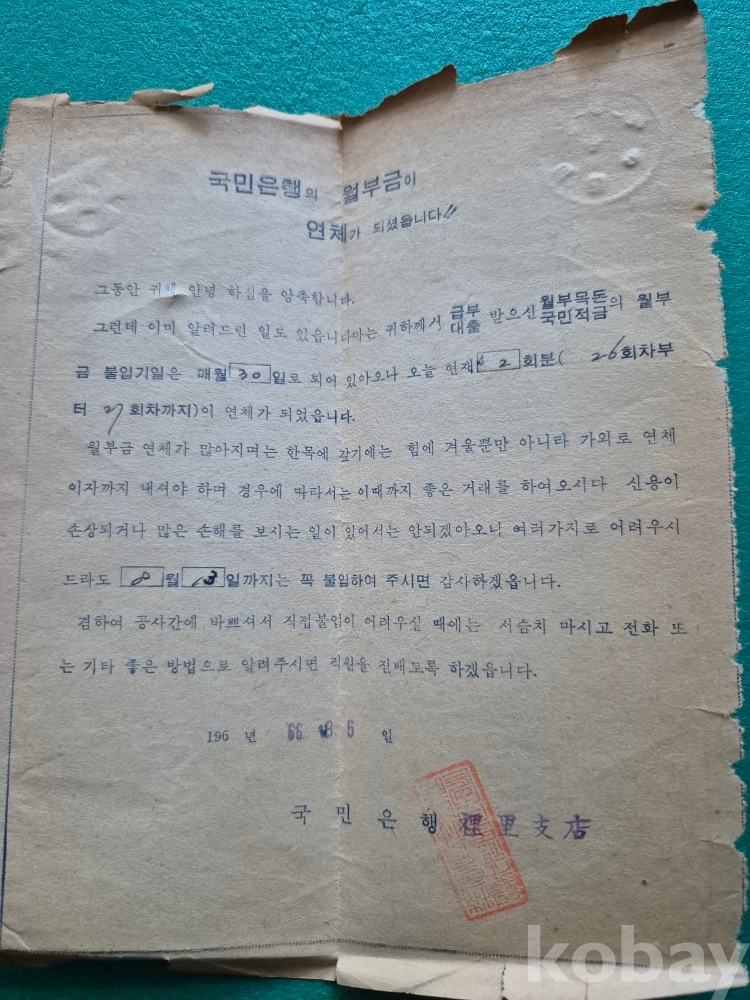 국민은행의 월부금이
연체가 되셨읍니다!!
그동안 귀체 안녕 하심을 앙축합니다.
그런데 이미 알려드린 일도 있읍니다마는 귀하께서 급부대출 받으신 월부목돈국민적금의 월부
금 불입기일은 매월 30 일로 되어 있아오나 오늘 현재 2 회분( 26회차부
터 27 회차까지)이 연체가 되었읍니다.
월부금 연체가 많아지며는 한목에 갚기에는 힘에 겨울뿐만 아니타 가외로 연체
이자까지 내셔야 하며 경우에 따라서는 이때까지 좋은 거래를 하여오시다 신용이
손상되거나 많은 손해를 보시는 일이 있어서는 안되겠아오니 여러가지로 어려우시
드라도 8 월 13 일까지는 꼭 불입하여 주시면 감사하겠읍니다.
겸하여 공사간에 바쁘셔서 직접불입이 어려우실 때에는 서슴치 마시고 전화 또
는 기타 좋은 방법으로 알려주시면 직원을 진배토록 하겠읍니다.
196 년 66 8 6 일
국민은행 裡里支店
kobay